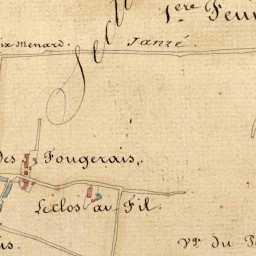 1ère Feui
ix Menard. Janzé
Sel
des Fougerais,
Le clos au Fil
is. Vge du P